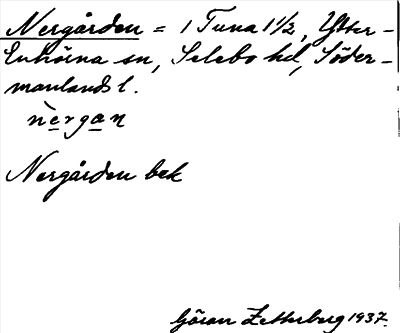 Nergården = 1 Tuna 1½, Ytter-
Enhörna sn, Selebo hd, Söder-
manlands l.
nèrgan
Nergården bek
Göran Zetterberg 1937.